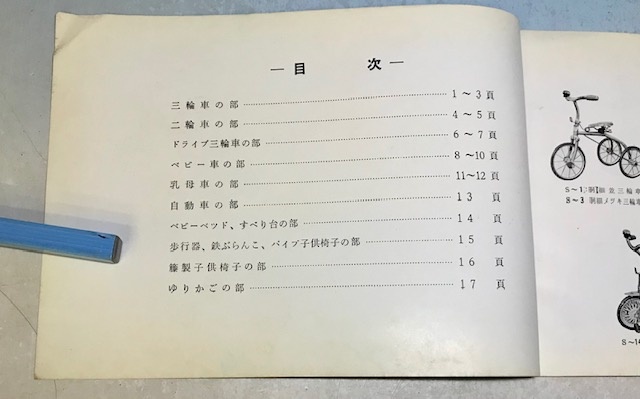 —目　次—
三輪車の部 1〜3頁
二輪車の部 4〜5頁
ドライブ三輪車の部 6〜7頁
ベビー車の部 8〜10頁
乳母車の部 11〜12頁
自動車の部 13頁
ベビーベツド、すべり台の部 14頁
歩行器、鉄ぶらんこ、パイプ子供椅子の部 15頁
籐製子供椅子の部 16頁
ゆりかごの部 17頁
S〜1
三輪車
S〜3
メツキ三輪車
S〜14